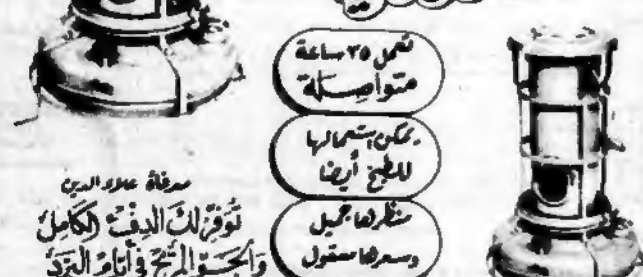 تعمل ٣٥ ساعة
متواصلة
يمكن استعمالها
للطبخ أيضا
منظرها جميل
وسعرها معقول
مدفأة علاء الدين
توفر لك الدفء الكامل
والجو المريح في أيام البرد